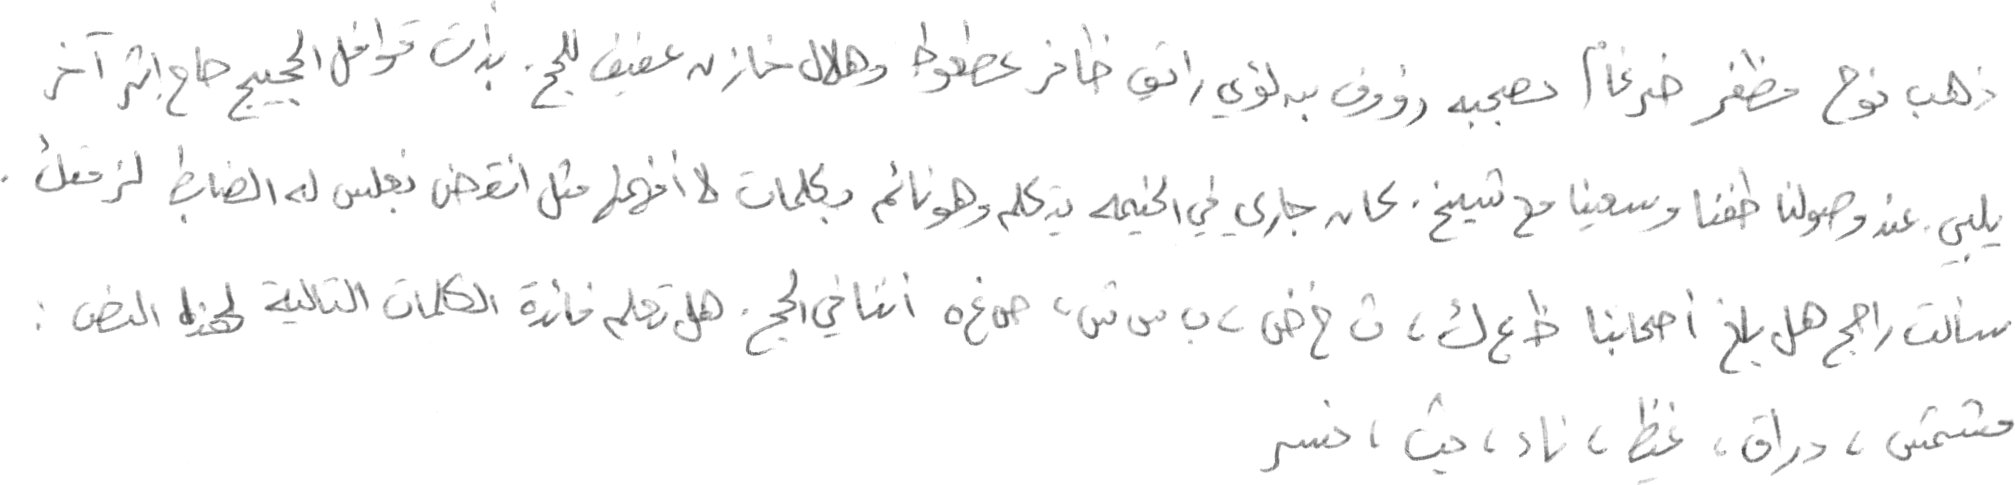 ذهب نوح مظفر ضرغام بصحبه رؤوف بن لؤي راتق ظافر عطعوط وهلال خازن عفيف للحج. بدأت قوافل الحجيج حاج إثر آخر
يلبي. عند وصولنا طفنا وسعينا مع شيخ. كان جاري في الخيمه يتكلم وهو نائم وبكلمات لا أفهمها مثل انقرض بغلس له الضابط لزمقك.
سألت راجح هل بلغ أصحابنا ظ ع ك، ث خ ض، ب س ش، ص غ ه أننا في الحج. هل تعلم فائدة الكلمات التالية لهذا النص:
مشمش، دراق، غيظ، ناد، حيث، خسر